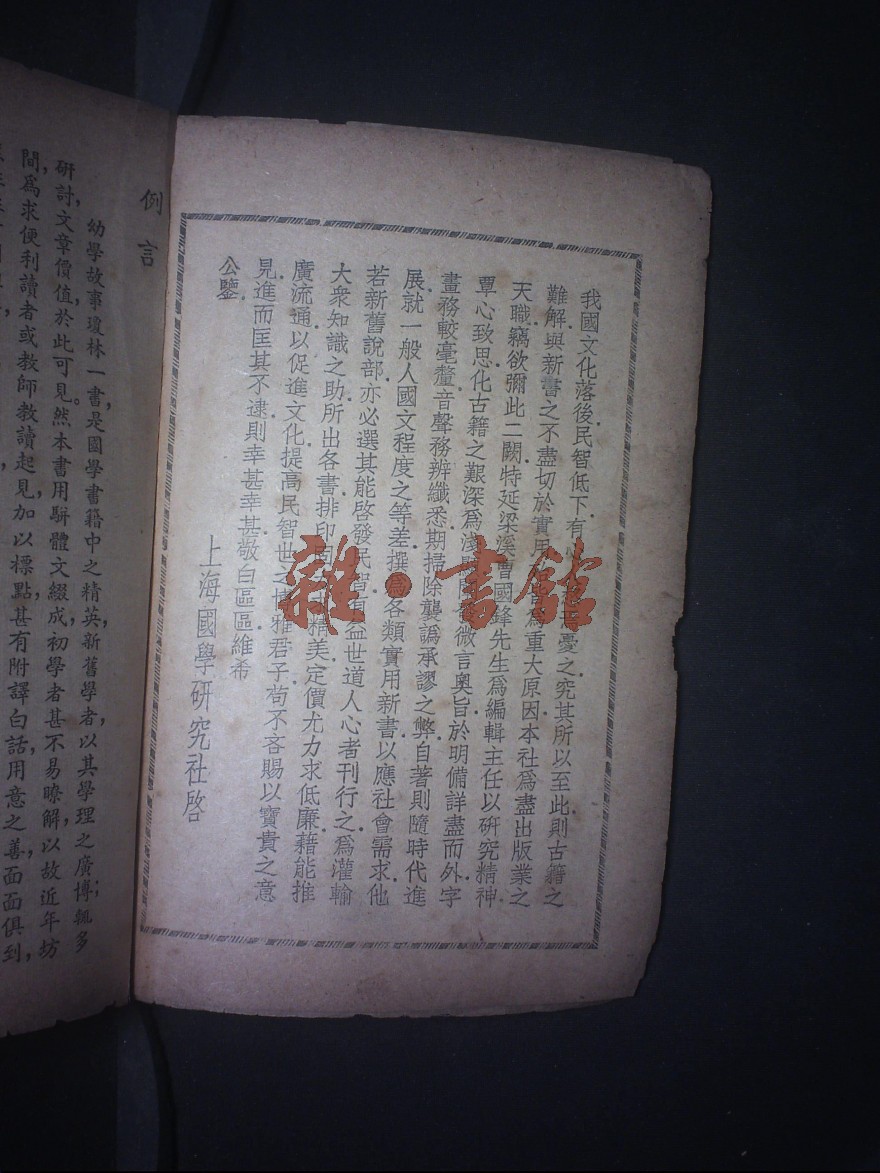 我國文化落後．民智低下．有憂之．究其所以至此．則古籍之
難解．與新書之不盡切於實用．爲重大原因．本社爲盡出版業之
天職．竊欲彌此二闕．特延梁溪曹國鋒先生爲編輯主任．以研究精神．
覃心致思．化古籍之艱深爲淺．微言奧旨於明備詳盡．而外字
畫務較毫釐．音聲務辨纖悉．期掃除襲譌承謬之弊．自著則隨時代進
展．就一般人國文程度之等差．撰爲各類實用新書．以應社會需求．他
若新舊說部．亦必選其能啓發民智．有益世道人心者刊行之．爲灌輸
大衆知識之助．所出各書．排印精美．定價尤力求低廉．藉能推
廣流通．以促進文化．提高民智．世之博雅君子．苟不吝賜以寶貴之意
見．進而匡其不逮．則幸甚幸甚．敬白區區．維希
公鑒．
上海國學研究社啓
例言
幼學故事瓊林一書，是國學書籍中之精英，新舊學者，以其學理之廣博；輒多
研討，文章價值，於此可見。然本書用駢體文綴成，初學者甚不易瞭解，以故近年坊
間，爲求便利讀者或教師教讀起見，加以標點，甚有附譯白話，用意之善，面面俱到，
雜·書館